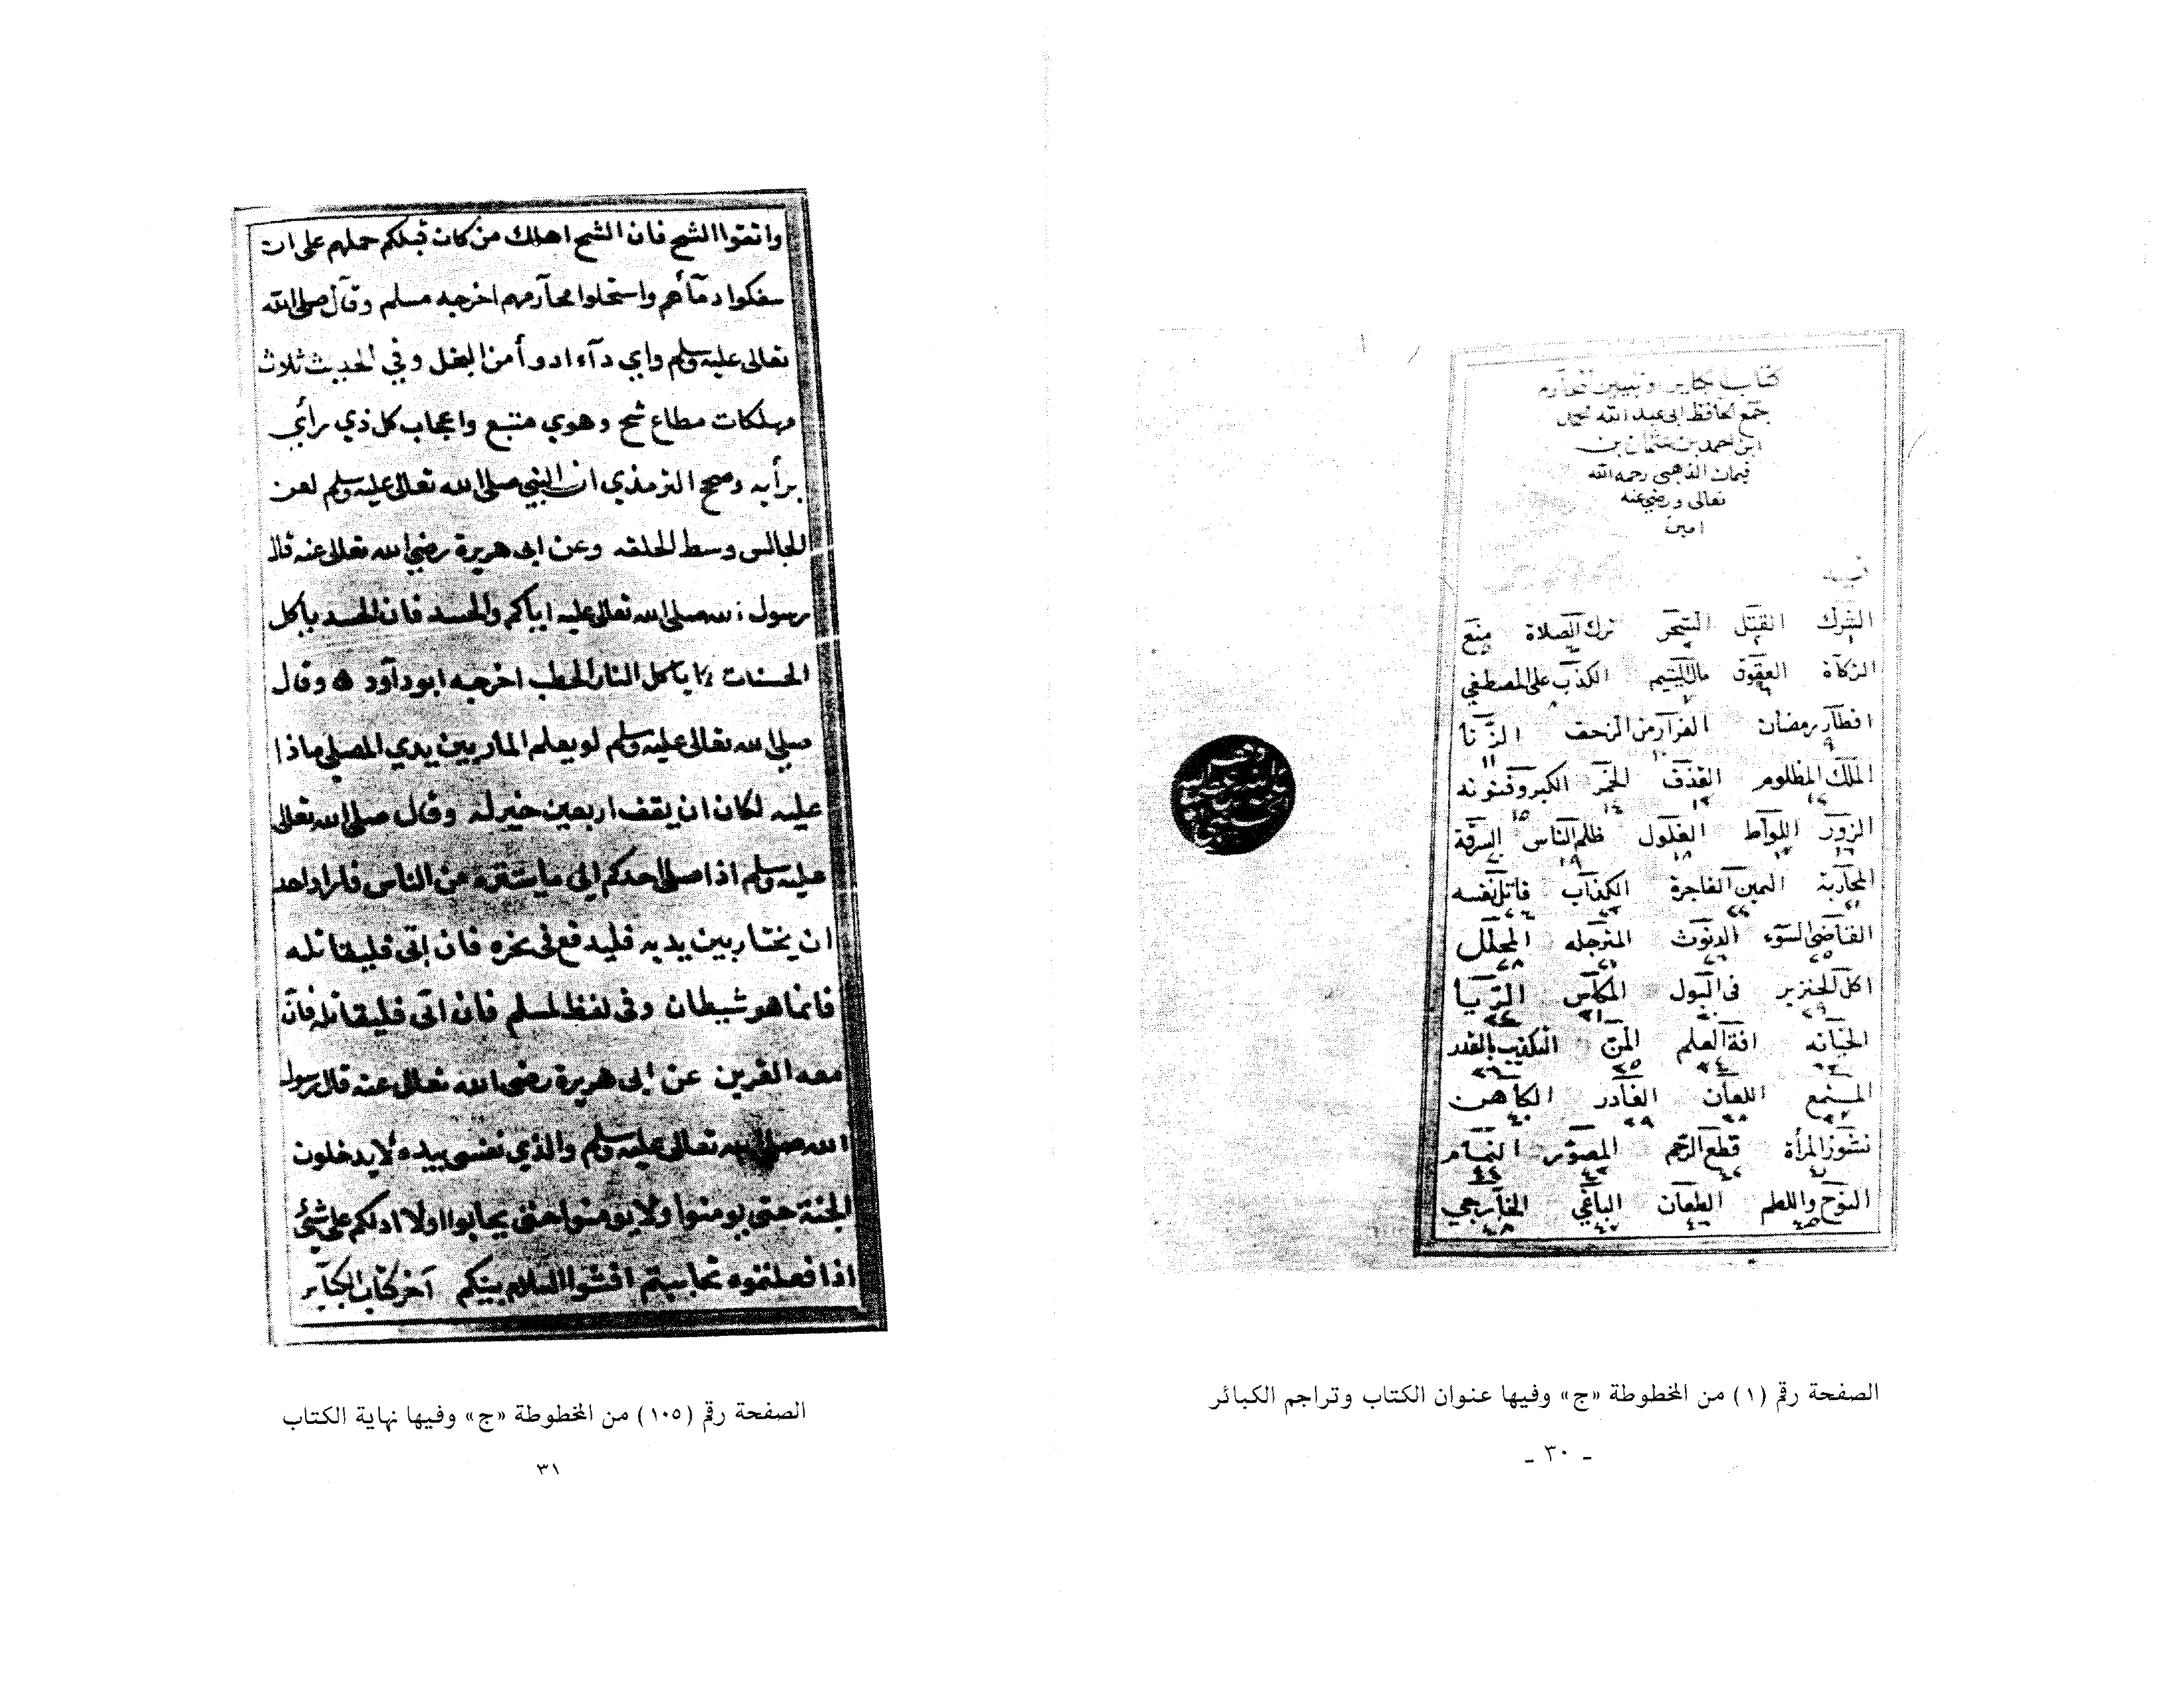 كتاب الكباير وتبيين المحارم
جمع الحافظ ابى عبد الله محمد
ابن احمد بن عثمان بن
قيمان الذهبى رحمه الله
تعالى ورضي عنه
امين
الشرك القتل السحر ترك الصلاة منع
١ ٢ ٣ ٤ ٥
الزكآة العقوق مال اليتيم الكذب على المصطفي
٦ ٧ ٨
افطار رمضان الفرار من الزحف الزنا
٩ ١٠ ١١
الملك المظلوم القذف الخمر الكبر وفنونه
١٢ ١٣ ١٤ ١٥
الزور اللواط الغلول ظلم الناس السرقة
١٦ ١٧ ١٨ ١٩ ٢٠
المحاربة اليمين الفاجرة الكذاب قاتل نفسه
٢١ ٢٢ ٢٣ ٢٤
القاضى السوء الديوث المترجله المحلل
٢٥ ٢٦ ٢٧ ٢٨
اكل الخنزير فى البول المكاس الربا
٢٩ ٣٠ ٣١ ٣٢
الخيانه افة العلم المن التكذيب بالقدر
٣٣ ٣٤ ٣٥ ٣٦
المسمع اللعان الغادر الكاهن
٣٧ ٣٨ ٣٩ ٤٠
نشوز المرأة قطع الرحم المصور النمام
٤١ ٤٢ ٤٣ ٤٤
النوح واللطم الطعان الباغي الخارجي
٤٥ ٤٦ ٤٧ ٤٨
الصفحة رقم (١) من المخطوطة «ج» وفيها عنوان الكتاب وتراجم الكبائر
- ٣٠ -
واتقوا الشح فان الشح اهلك من كان قبلكم حملهم على ان
سفكوا دمآهم واستحلوا محآرمهم اخرجه مسلم وقال صلى الله
تعالى عليه وسلم واي دآء ادوأ من البخل وفي الحديث ثلاث
مهلكات مطاع شح وهوي متبع واعجاب كل ذي رأي
برأيه وصح الترمذي ان النبي صلى الله تعالى عليه وسلم لعن
الجالس وسط الحلقه وعن ابى هريرة رضي الله تعالى عنه قال
رسول الله صلى الله تعالى عليه اياكم والحسد فان الحسد ياكل
الحسنات كما ياكل النار الحطب اخرجه ابو دآود وقال
صلى الله تعالى عليه وسلم لو يعلم المار بين يدي المصلى ماذا
عليه لكان ان يقف اربعين خير له وقال صلى الله تعالى
عليه وسلم اذا صلى احدكم الي ما يستره من الناس فاراد احد
ان يختار بين يديه فليدفع فى نحره فان ابى فليقاتله
فانما هو شيطان وفى لفظ لمسلم فان ابى فليقاتله فان
معه القرين عن ابى هريرة رضى الله تعالى عنه قال رسول
الله صلى الله تعالى عليه وسلم والذي نفسى بيده لا يدخلون
الجنة حتى يومنوا ولا يومنوا حتى تحابوا اولا ادلكم على شئ
اذا فعلتموه تحاببتم افشوا السلام بينكم آخر كتاب الكبآير
الصفحة رقم (١٠٥) من المخطوطة «ج» وفيها نهاية الكتاب
٣١